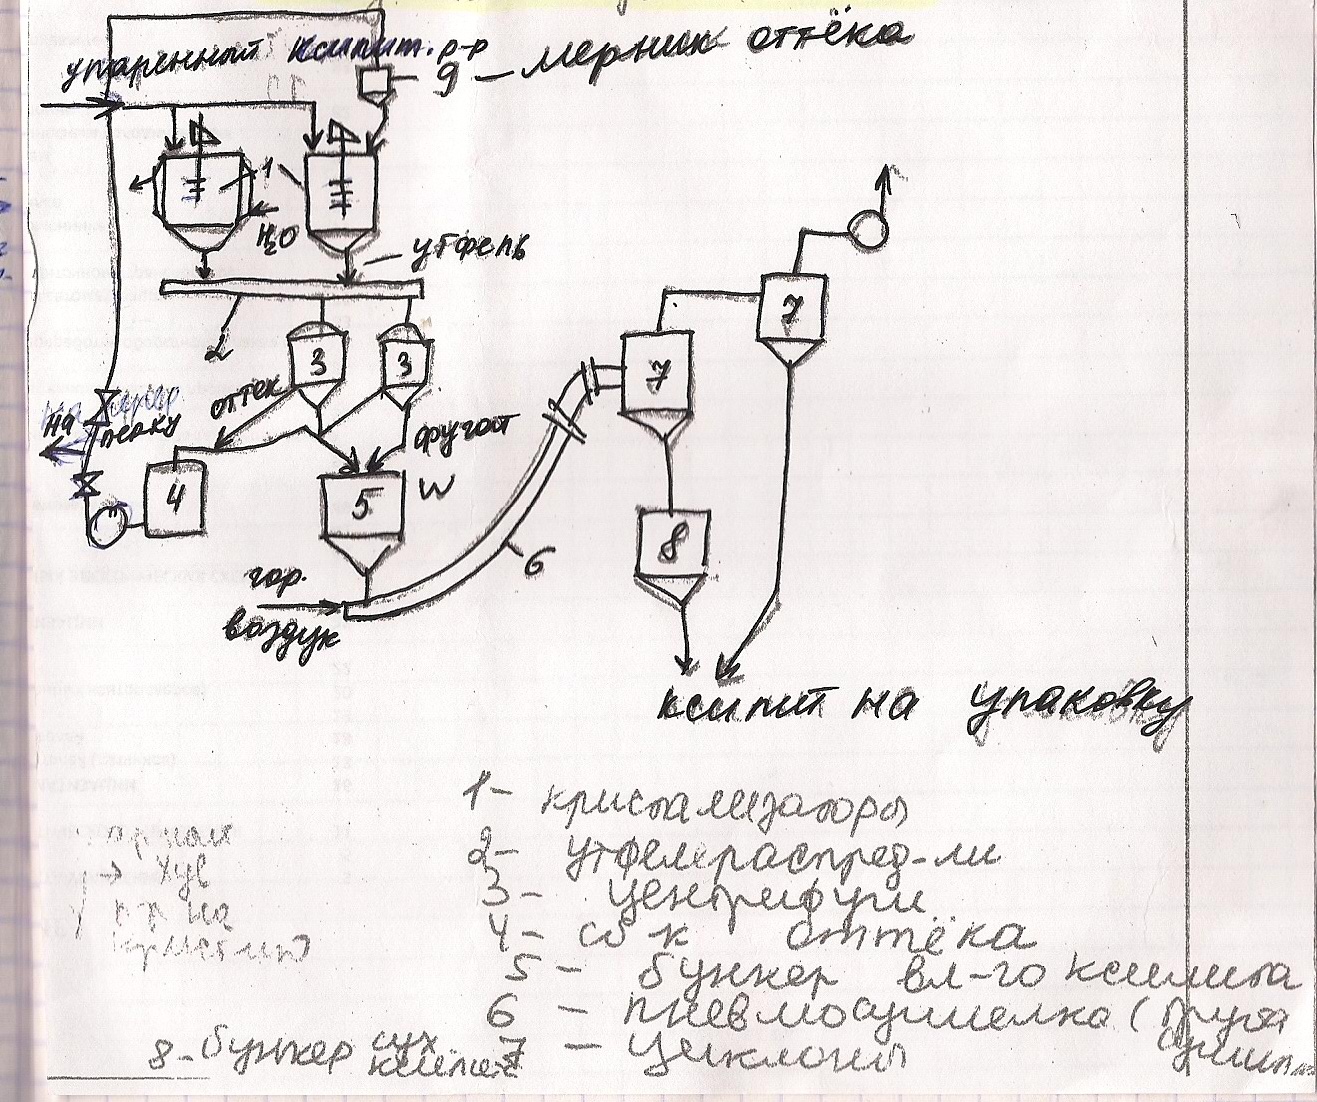 упаренный ксилит. р-р
9 – мерник оттёка
1
H2O
утфель
2
3
3
7
7
оттек
на
фугат
4
5
W
6
8
гор.
воздух
ксилит на упаковку
1- кристализаторы
2- утфелераспред-ли
3- центрифуги
4- сб-к оттёка
5- бункер вл-го ксилита
6 – пневмосушилка (труба
7 – циклоны
8- бункер сух
ксилита
→
р-р на